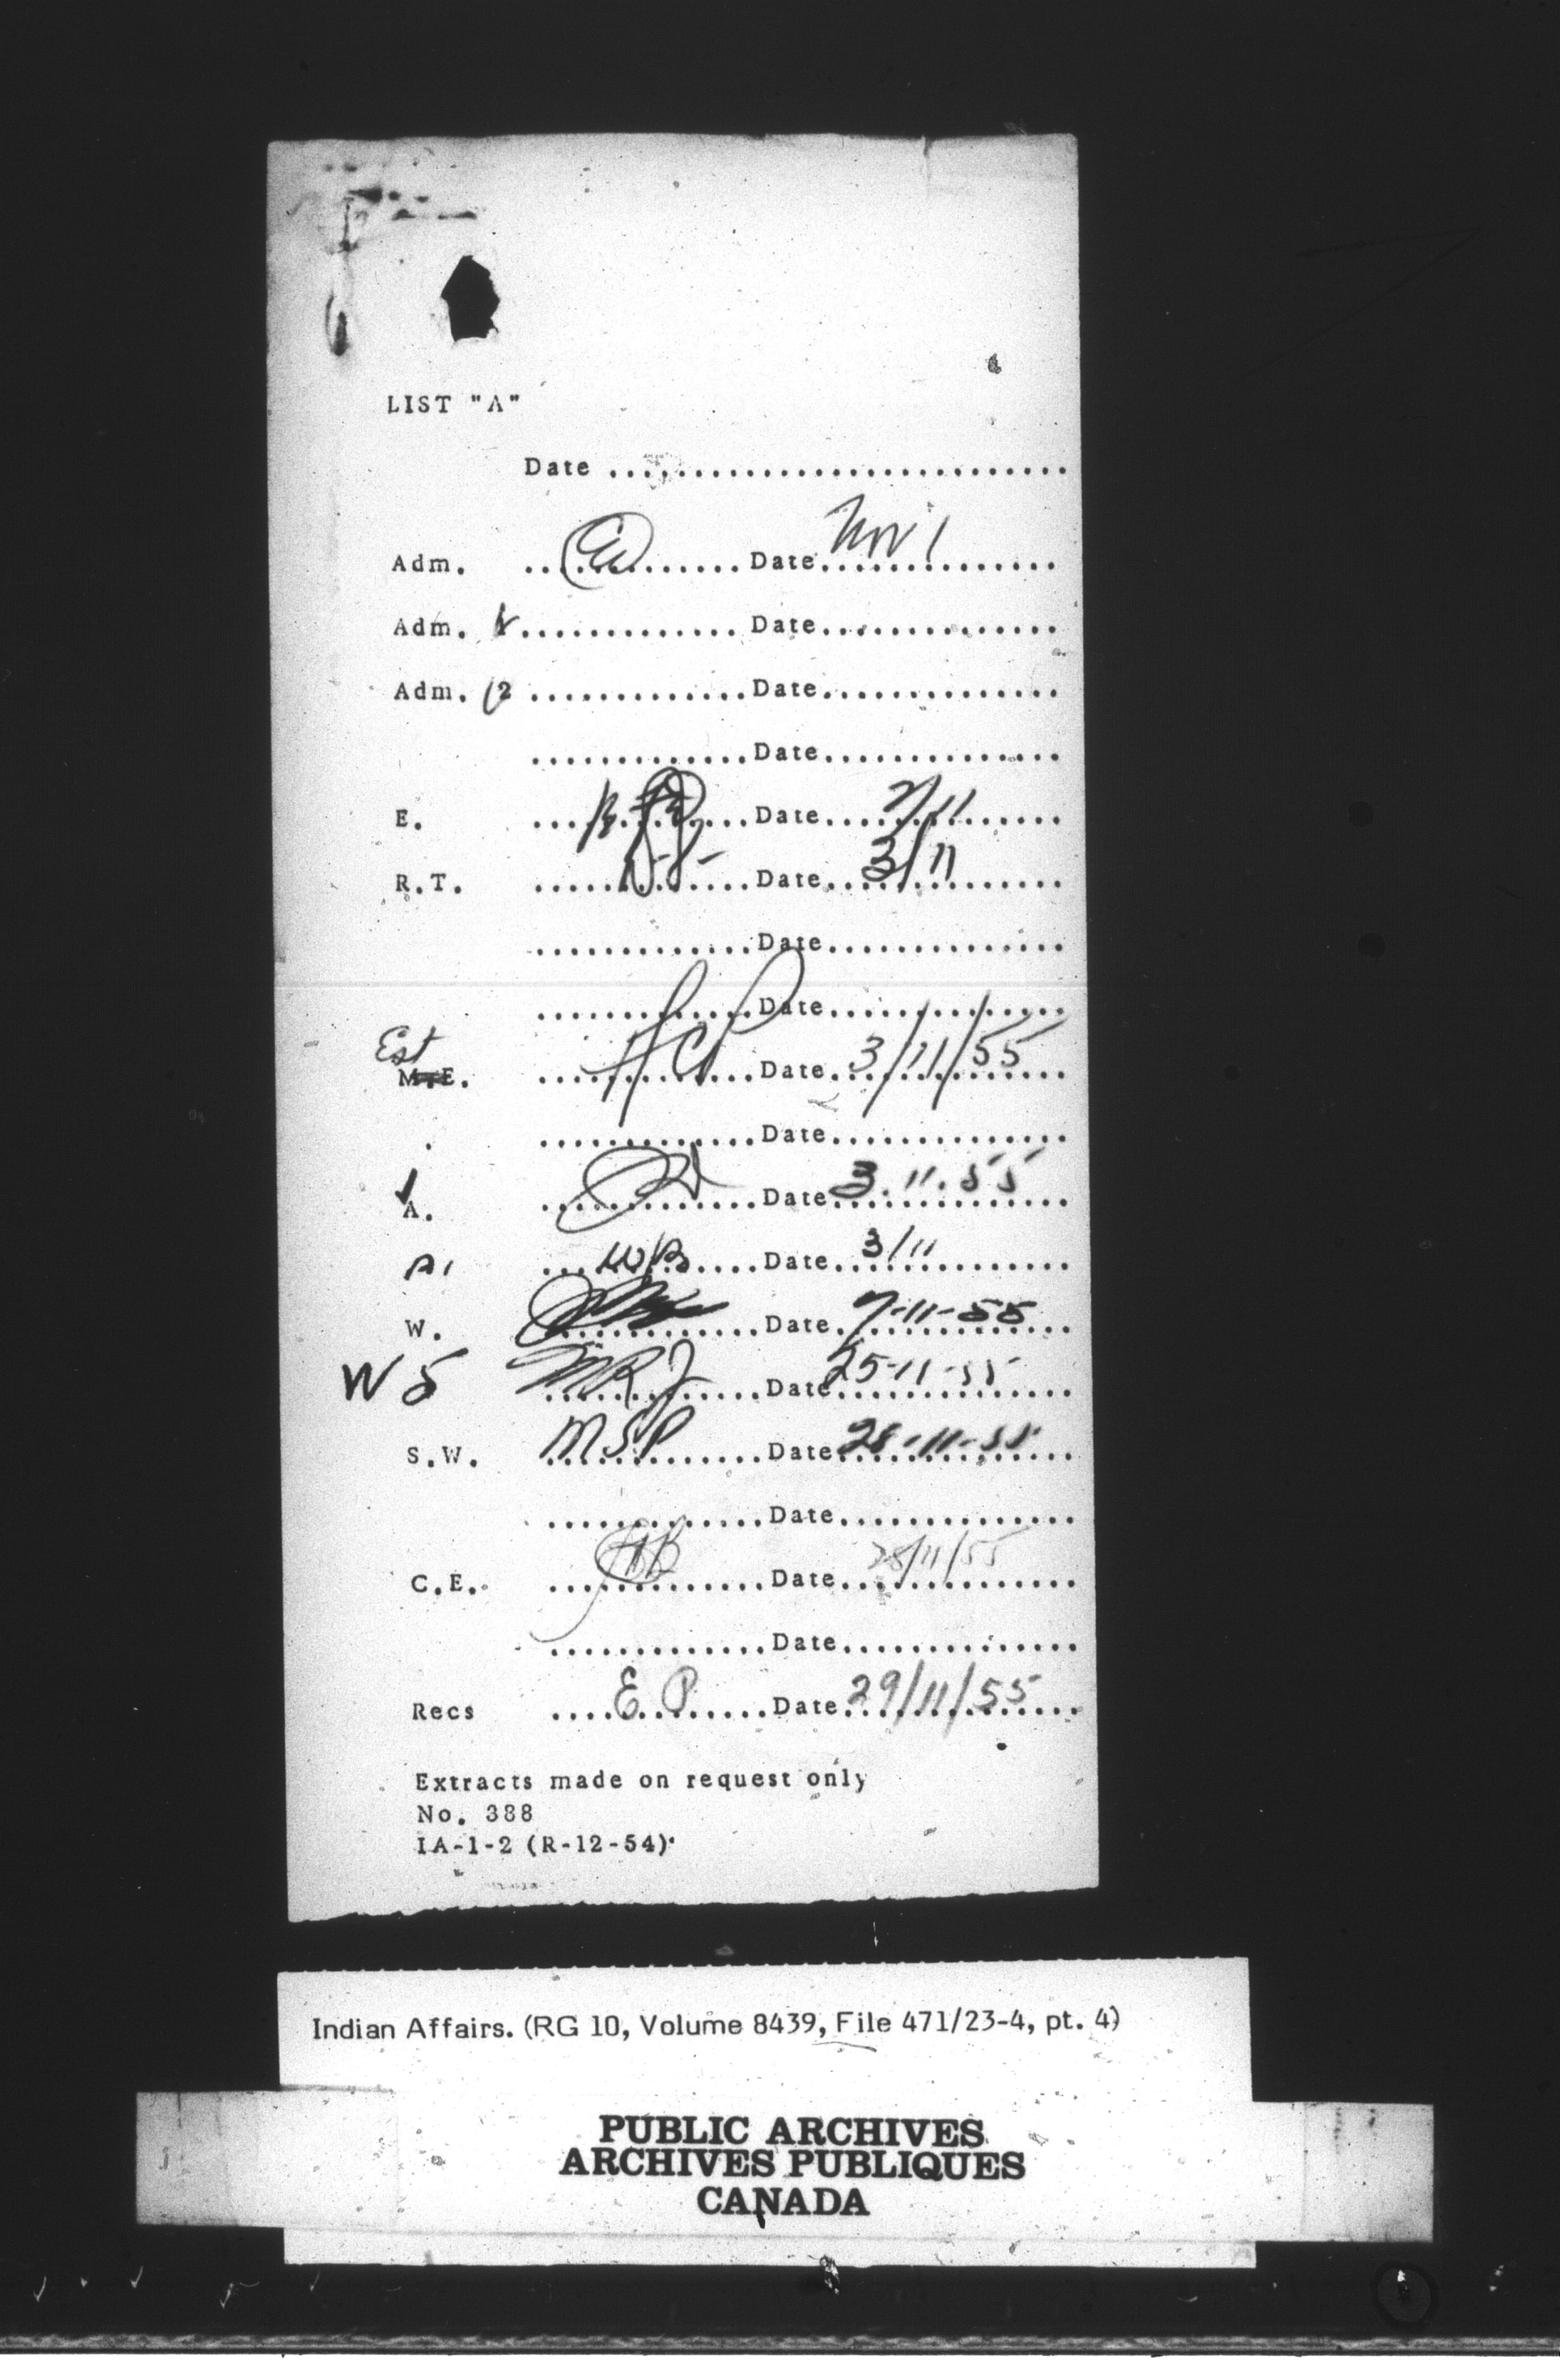 LIST "A"
Date ..............................
Adm. .............. Date Nov 1
Adm. 1 .............. Date ..............
Adm. 2 .............. Date ..............
.............. Date ..............
E. .............. Date ..............
R.T. .............. Date 3/11
.............. Date ..............
.............. Date ..............
Est
M.E. .............. Date 3/11/55
.............. Date ..............
A. .............. Date 3.11.55
A1 WB Date 3/11
W. .............. Date 7-11-55
W5 MRJ Date 25-11-55
S.W. MSP Date 28-11-55
.............. Date ..............
C.E. .............. Date 28/11/55
.............. Date ..............
Recs E.P. Date 29/11/55
Extracts made on request only
No. 388
IA-1-2 (R-12-54)
Indian Affairs. (RG 10, Volume 8439, File 471/23-4, pt. 4)
PUBLIC ARCHIVES
ARCHIVES PUBLIQUES
CANADA